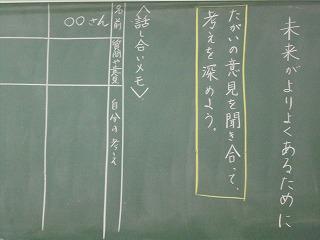 未来がよりよくあるために
たがいの意見を聞き合って、
考えを深めよう。
〈話し合いメモ〉
名前
質問や意見
自分の考え
〇〇さん